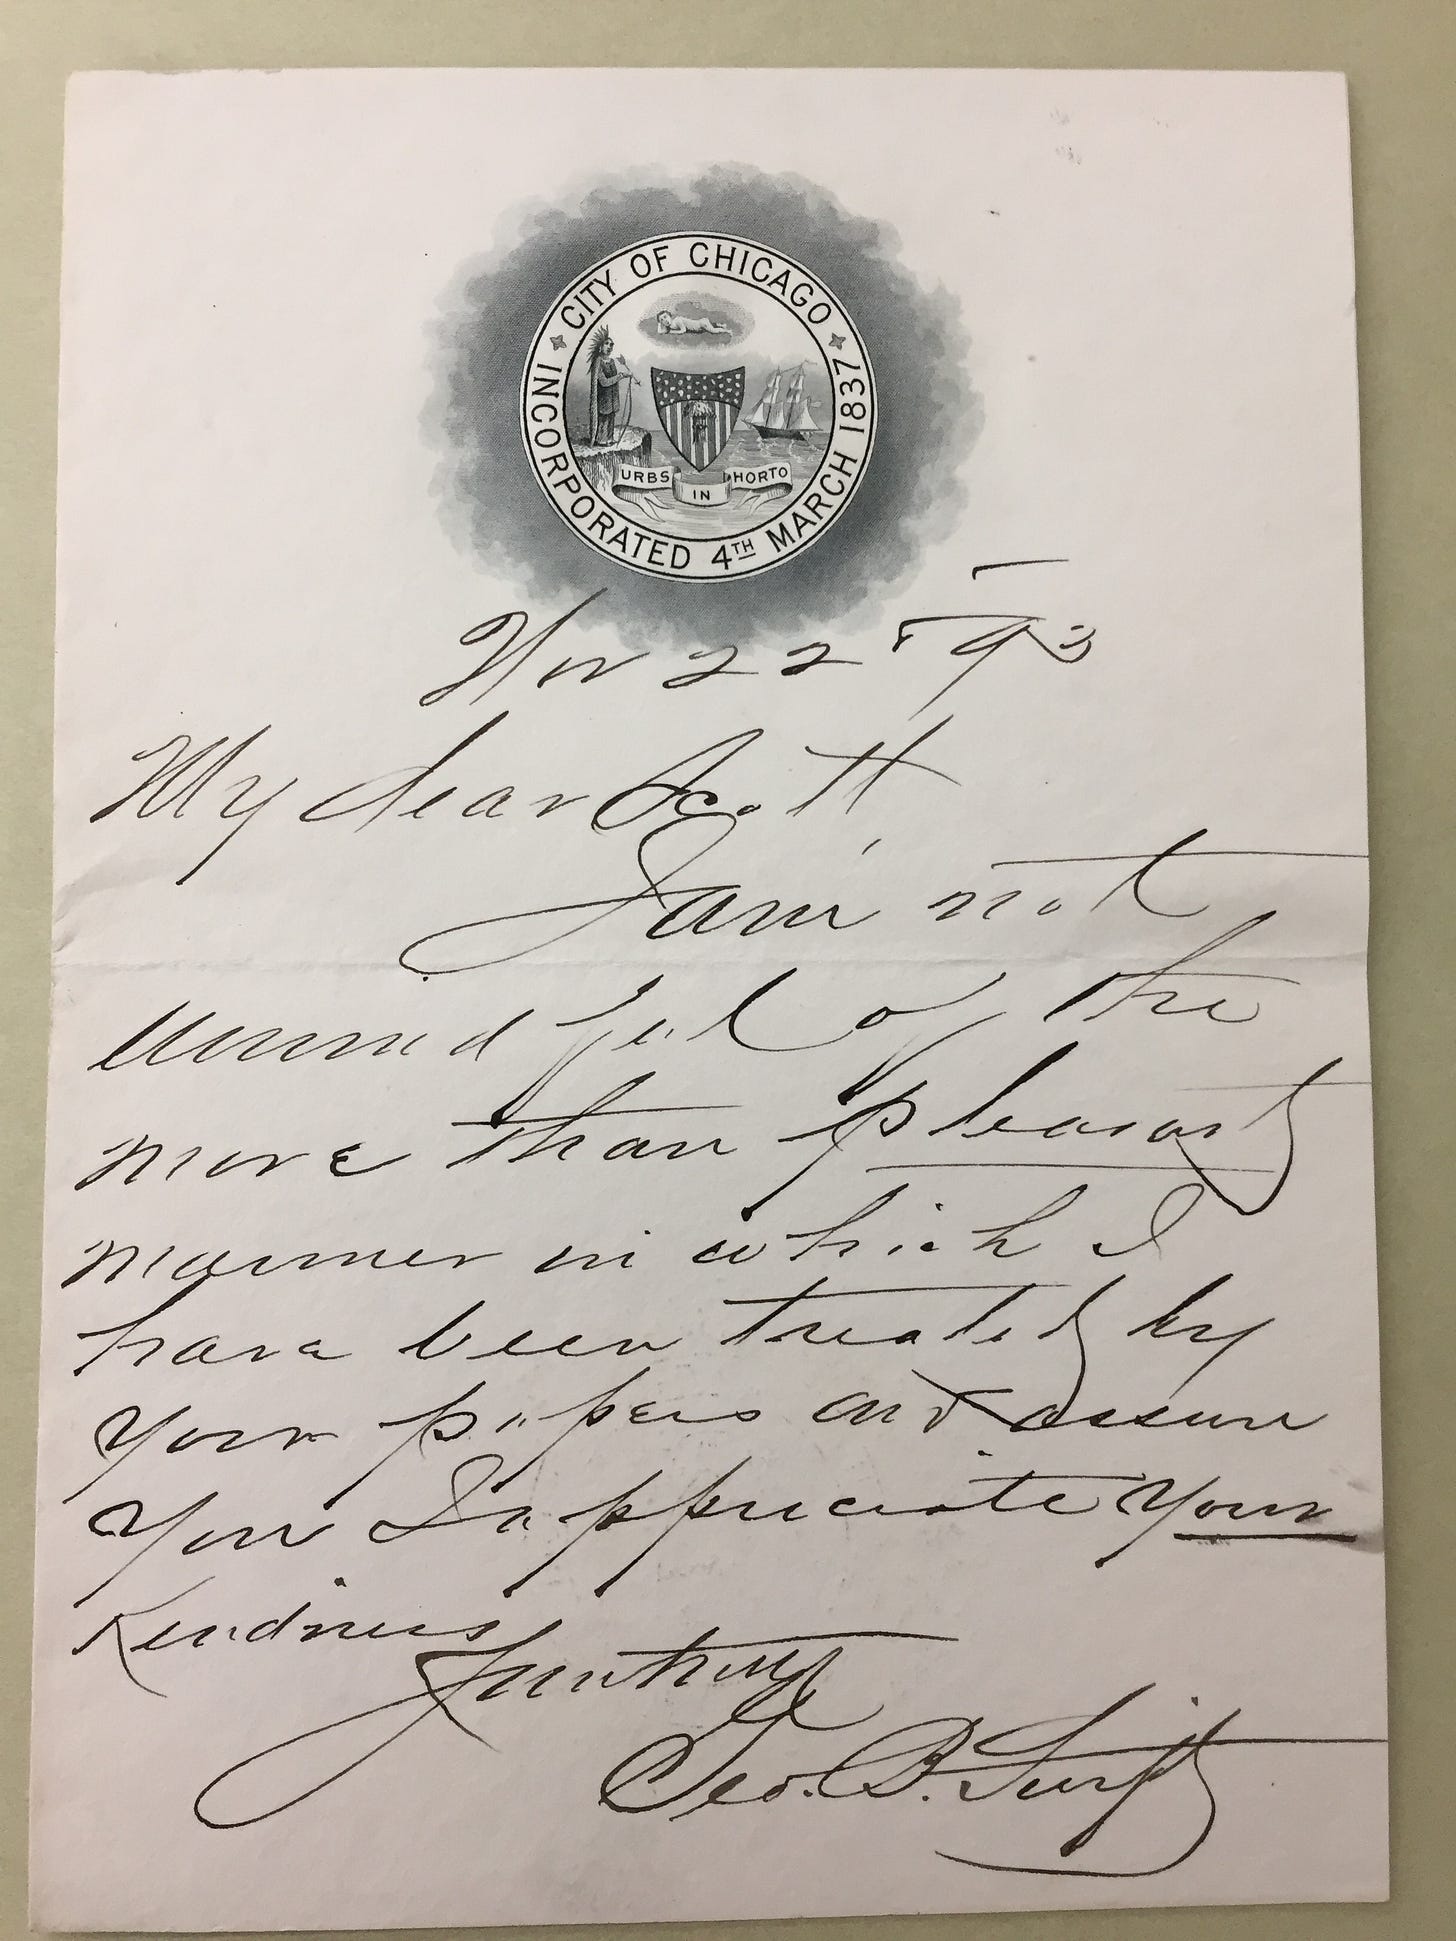 CITY OF CHICAGO
INCORPORATED 4TH MARCH 1837
URBS IN HORTO
Nov 22 '93
My dear Scott,
I am not
unmindful of the
more than pleasant
manner in which I
have been treated by
your papers and assure
you I appreciate your
Kindness
Geo. B. Swift